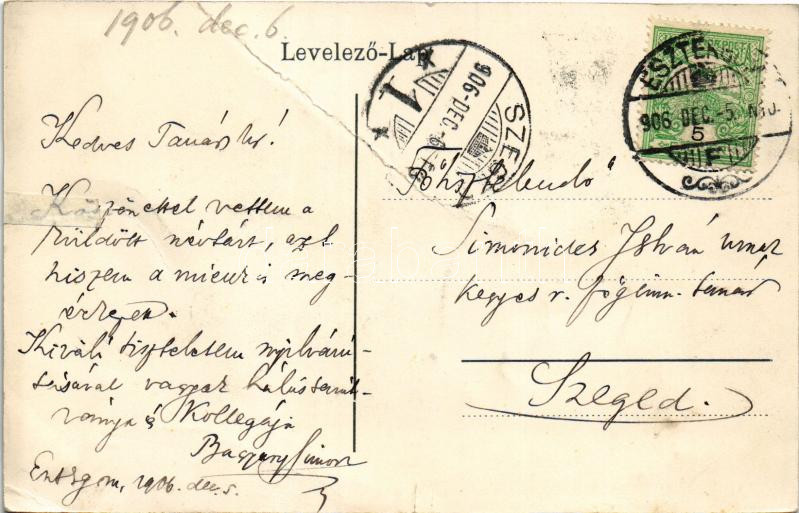 1906. dec. 6
Levelező-Lap
ESZTERGOM
906. DEC. -5.
5
F
SZEGED
906-DEC.-6
1
Kedves Tanár Úr!
Köszönettel vettem a
küldött névtárt, azt
hiszem a mieuk is meg-
érkezett.
Kiváló tiszteletem nyilvání-
tásával vagyok hálás tanít-
ványa és Kollegája
Esztergom, 1906. dec. 5.
Főtisztelendő
Simonides István úrnak
kegyes r. főgimn. tanár
Szeged.